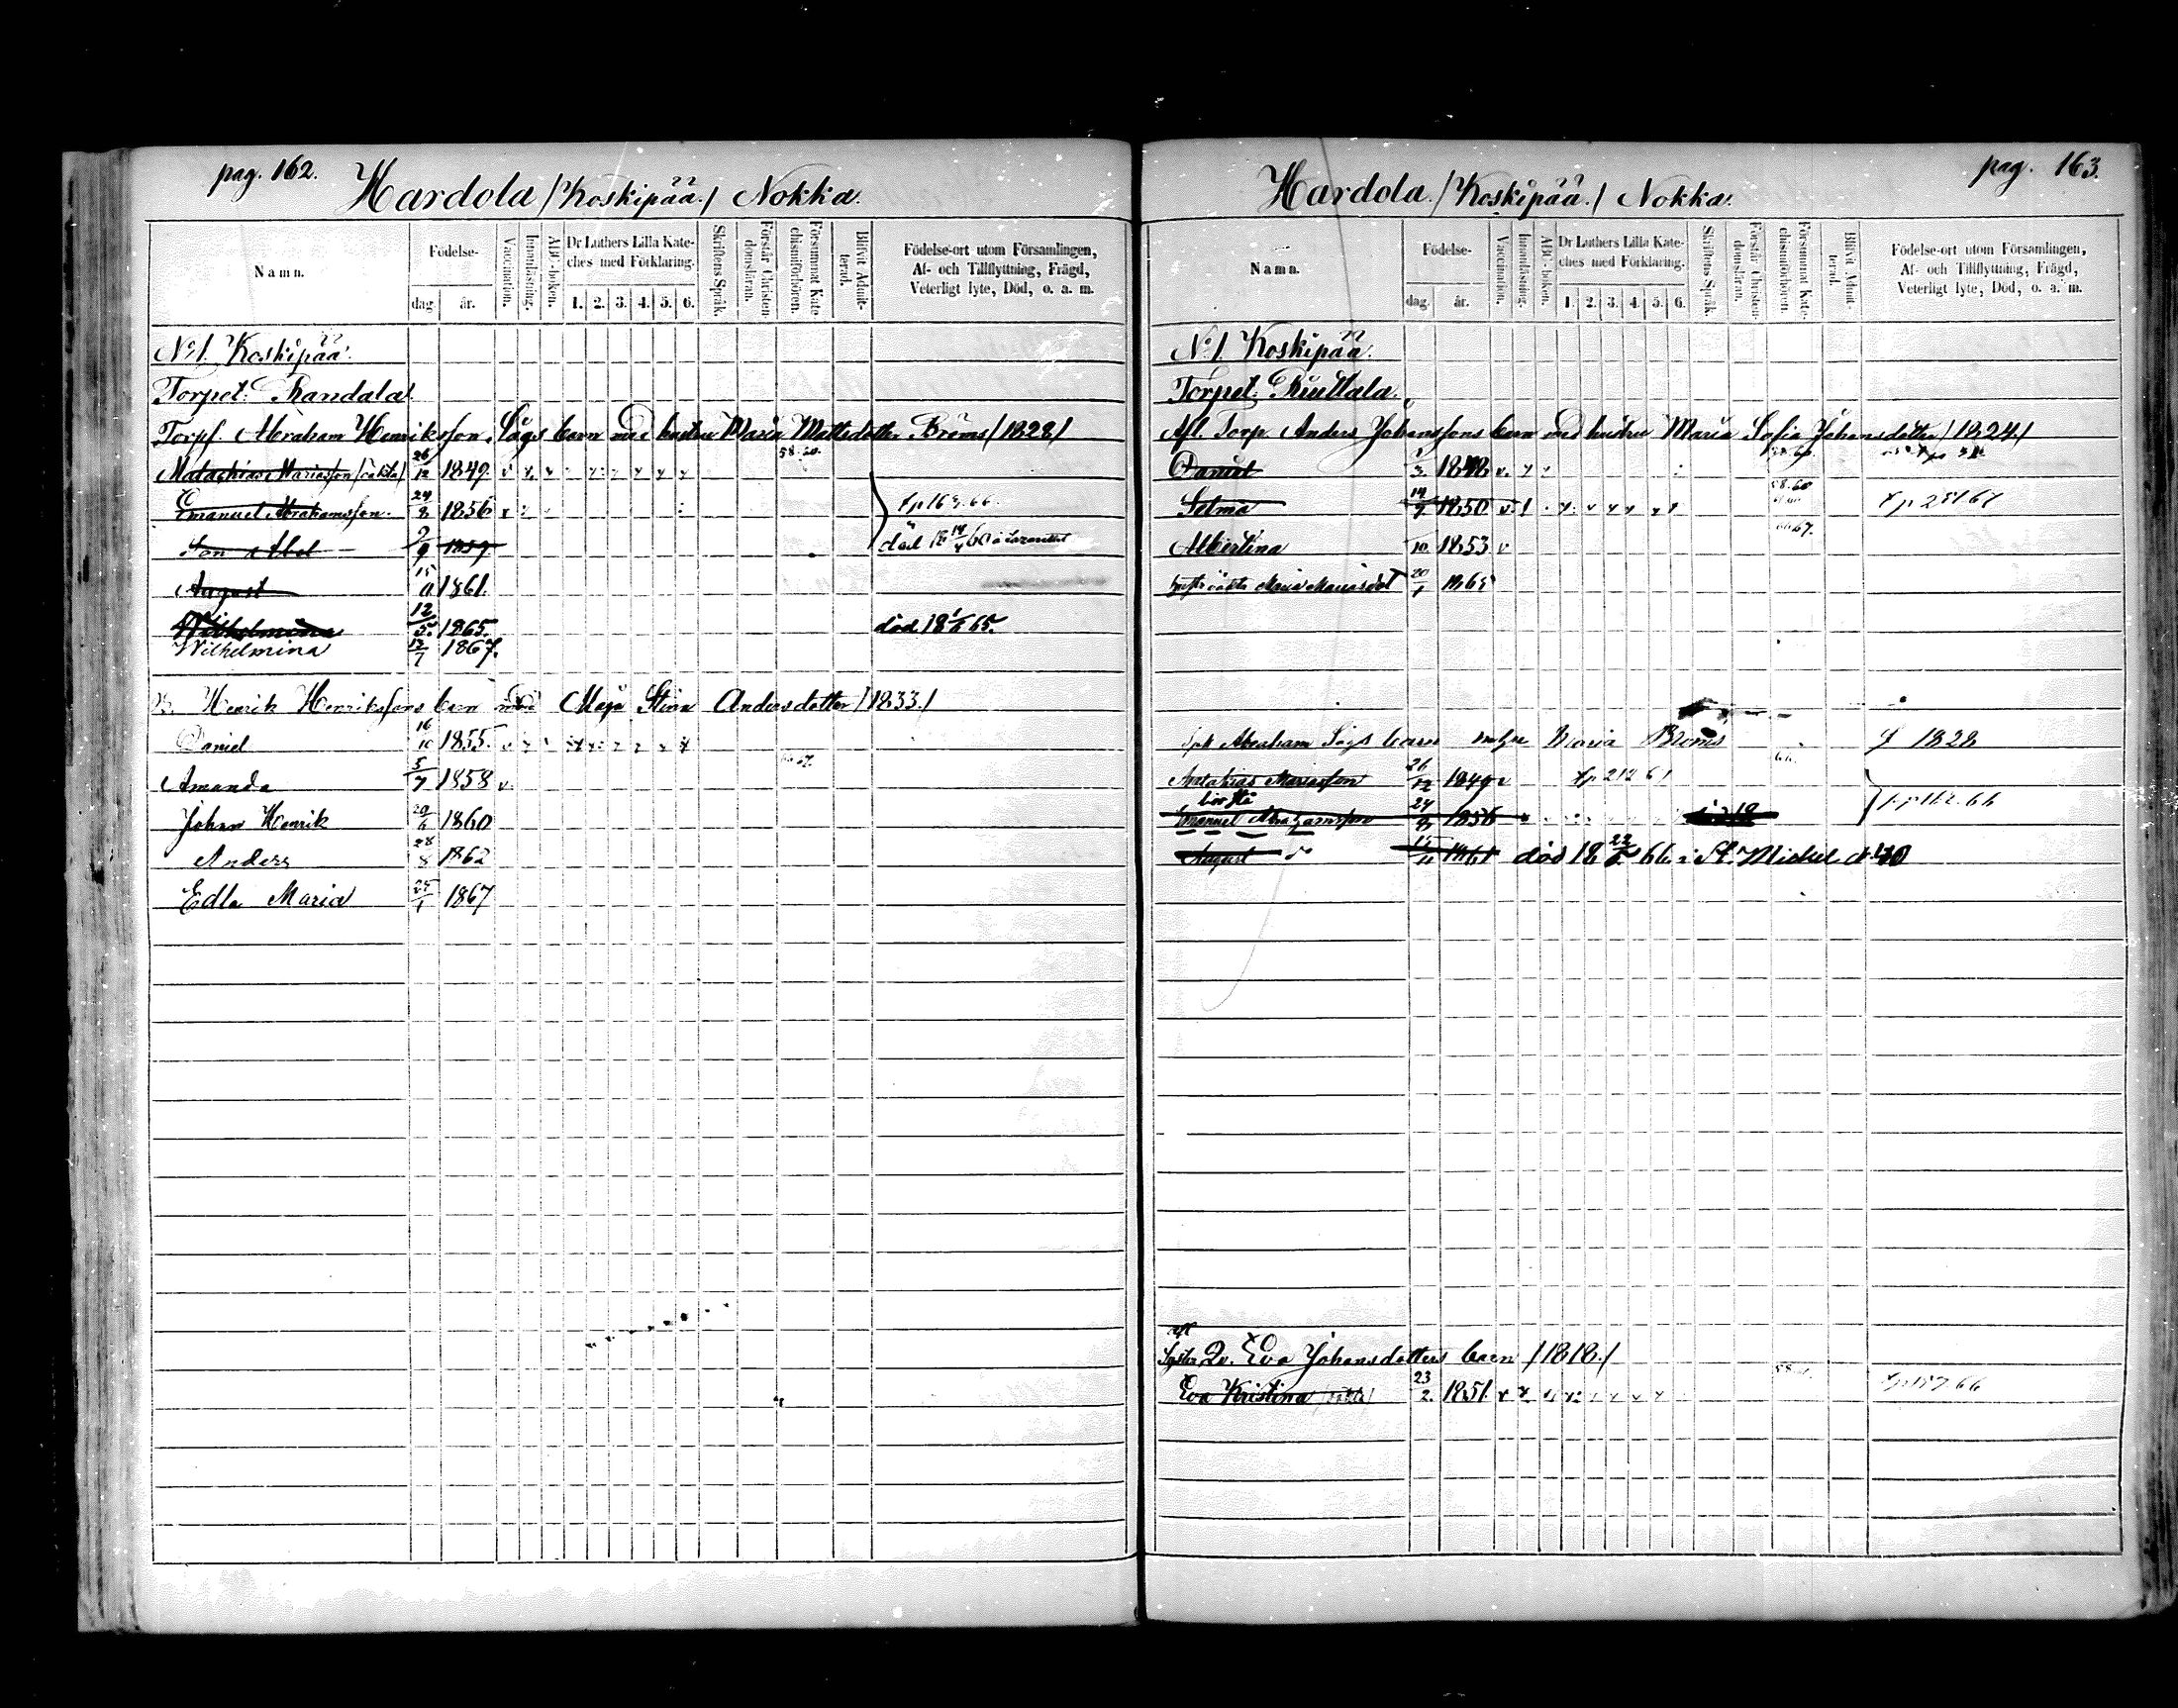 pag. 162.
Hardola /Koskipää./ Nokka.
Namn.
Födelse-
dag. år.
Vaccination.
Innanläsning.
ABC-boken.
Dr Luthers Lilla Kate-
ches med Förklaring.
1. 2. 3. 4. 5. 6.
Skriftens Språk.
Förstår Christen-
domsläran.
Försummat Kate-
chismiförhören.
Blifvit Admit-
terad.
Födelse-ort utom Församlingen,
Af- och Tillflyttning, Frägd,
Veterligt lyte, Död, o. a. m.
No 1. Koskipää.
Torpet: Randala
Torpf. Abraham Henriksson Sägs barn med hustru Maria Mattsdotter Broms /1828/
58.60.
Malachias Mariasson /oäkta/ 26/12 1849.
Emanuel Abrahamsson. 24/8 1856
Son Abel 9/9 1859 död 18 14/4 60 i Lazarettet
August 15/11 1861.
Wilhelmina 12/5. 1865. död 18 1/6 65.
Wilhelmina 12/7 1867.
Henrik Henrikssons barn med Maja Stina Andersdotter /1833./
Daniel 16/10 1855.
Amanda 5/7 1858
Johan Henrik 20/6 1860
Anders 28/8 1862
Edla Maria 25/1 1867
pag. 163.
Hardola. /Koskipää./ Nokka.
Namn.
Födelse-
dag. år.
Vaccination.
Innanläsning.
ABC-boken.
Dr Luthers Lilla Kate-
ches med Förklaring.
1. 2. 3. 4. 5. 6.
Skriftens Språk.
Förstår Christen-
domsläran.
Försummat Kate-
chismiförhören.
Blifvit Admit-
terad.
Födelse-ort utom Församlingen,
Af- och Tillflyttning, Frägd,
Veterligt lyte, Död, o. a. m.
No 1. Koskipää.
Torpet: Ruuttala.
Afl. Torp. Anders Johanssons barn med hustru Maria Sofia Johansdotter /1824./
Daniel 1/3. 1848
58.60
Selma 14/9 1850
Albertina 10 1853
oäkta Maria Mariasdot 20/1 1865
Abraham Sägs barn Maria Broms 1828
Malakias Mariasson 26/12 1849
Emanuel Abrahamsson 24/8 1856
August 15/11 1861 död 18 22/5 66 i St. Michel
Qv. Eva Johansdotters barn /1818./
Eva Kristina /oäkta/ 23/2. 1851.